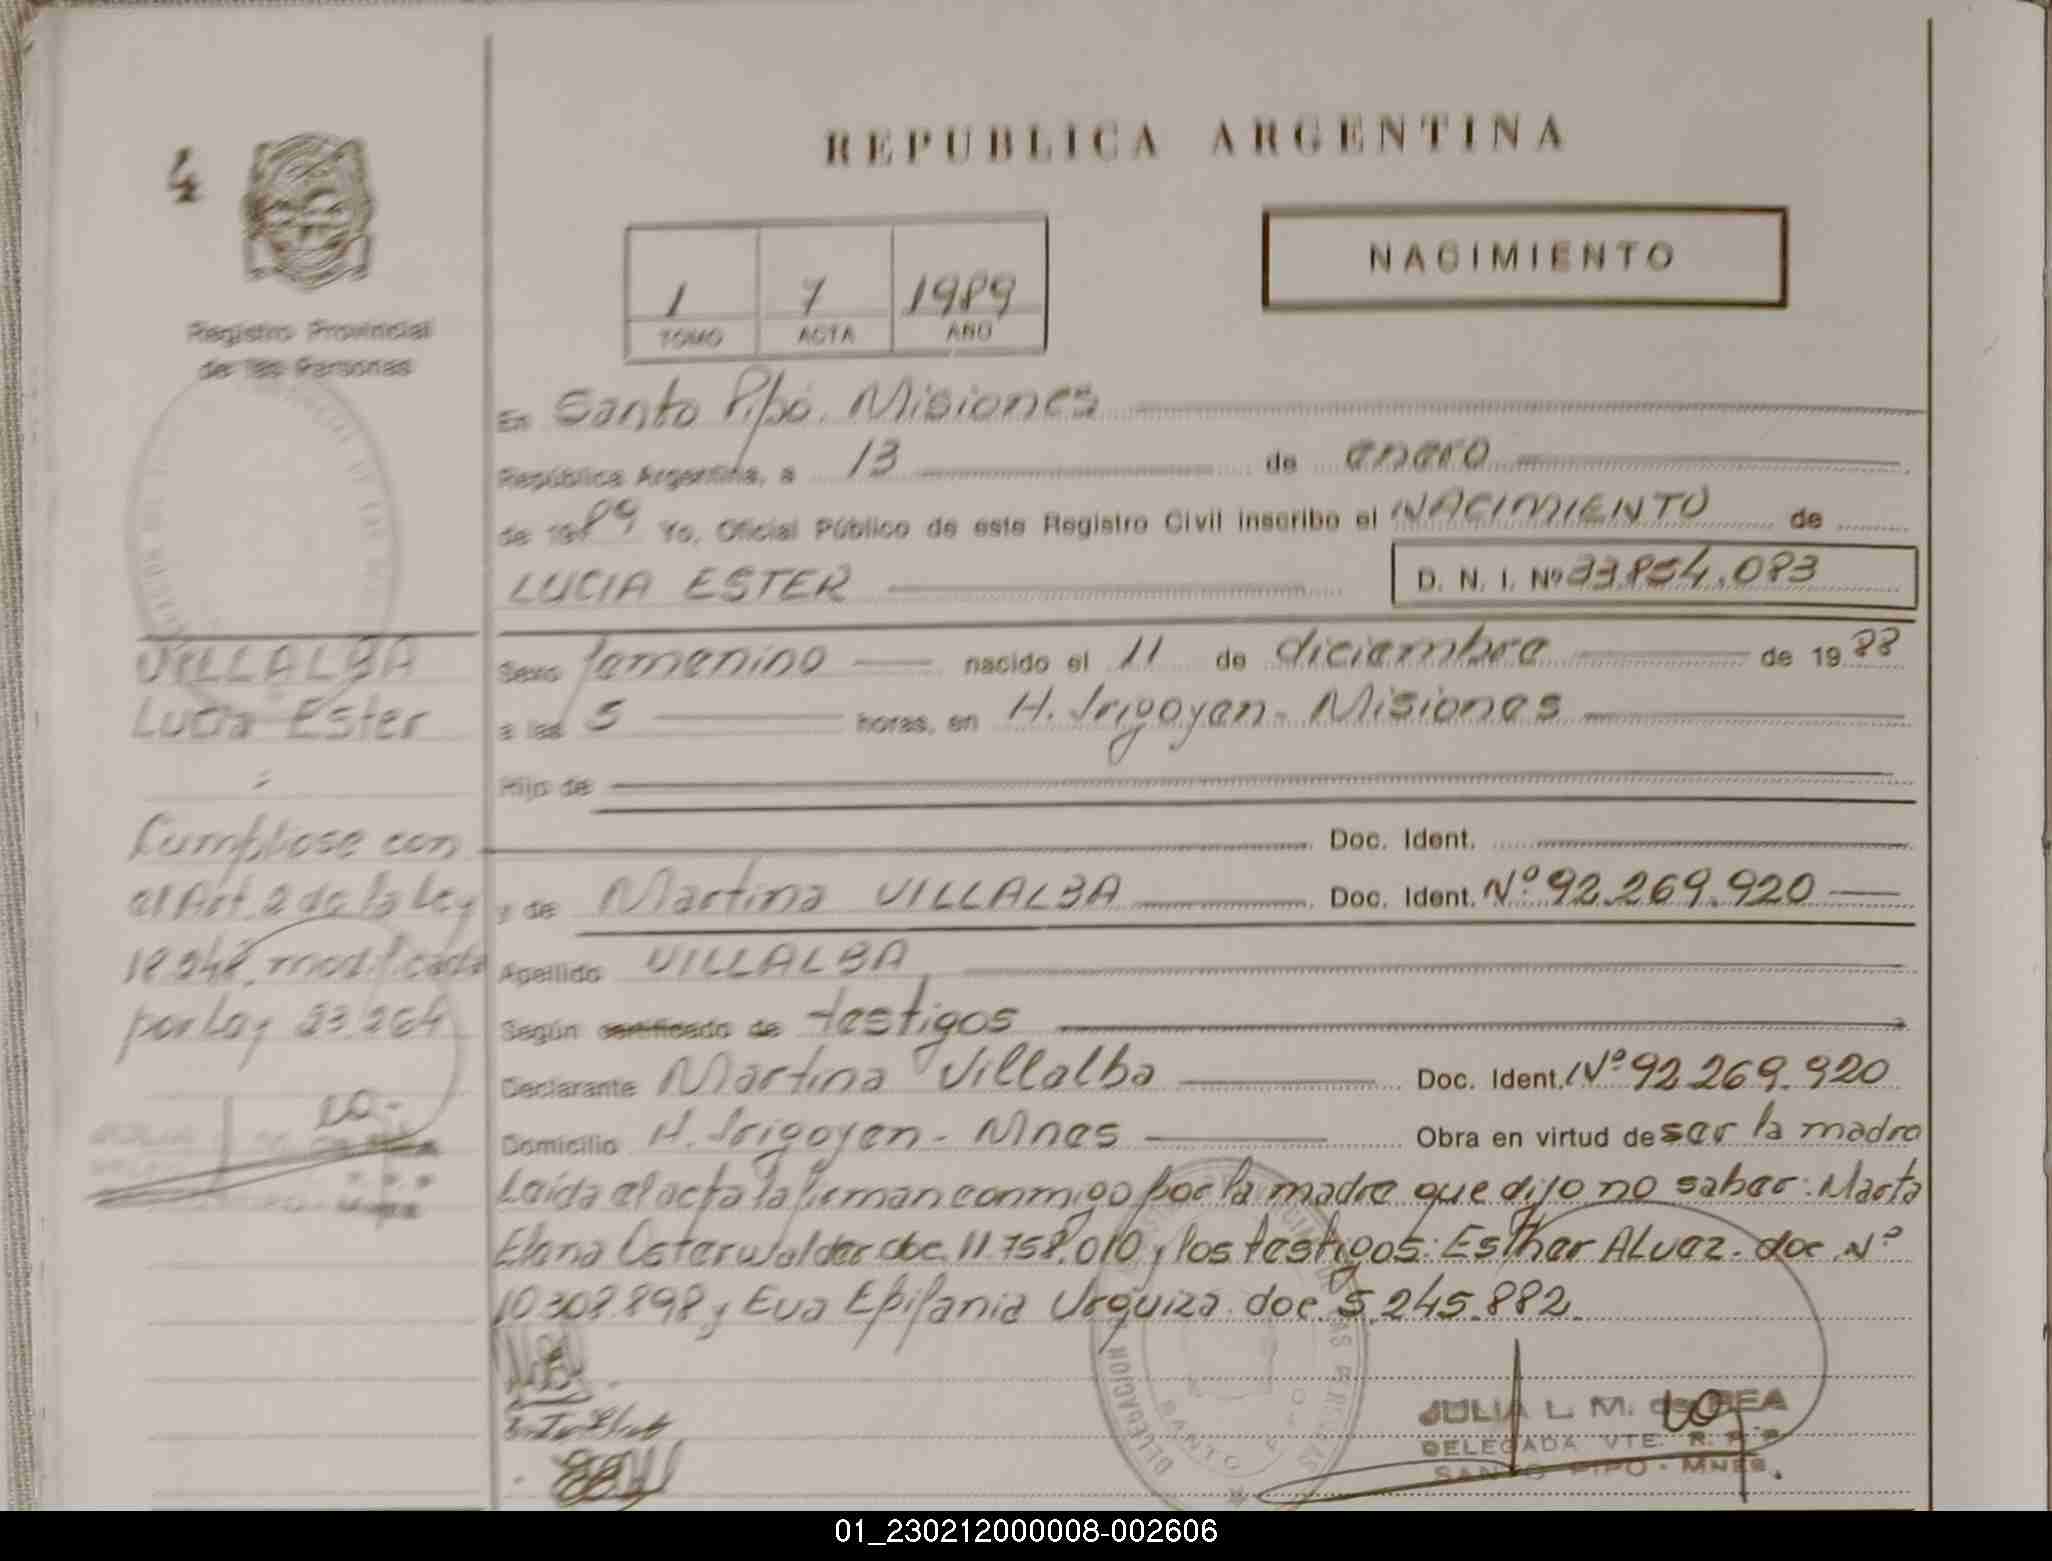 REPUBLICA ARGENTINA
4
NACIMIENTO
1 7 1989
TOMO ACTA AÑO
Registro Provincial
de las Personas
En Santo Pipó. Misiones
República Argentina, a 13 de enero
de 1989 Yo, Oficial Público de este Registro Civil inscribo el NACIMIENTO de
LUCIA ESTER D. N. I. Nº 33.854.083
VILLALBA
Lucia Ester
Sexo femenino nacido el 11 de diciembre de 1988
a las 5 horas, en H. Irigoyen - Misiones
Hijo de
Doc. Ident.
Cumpliose con
el Art. 2 de la Ley
18.248, modificada
por Ley 23.264
y de Martina VILLALBA Doc. Ident. Nº 92.269.920
Apellido VILLALBA
Según certificado de testigos
Declarante Martina Villalba Doc. Ident. Nº 92.269.920
Domicilio H. Irigoyen - Mnes Obra en virtud de ser la madre
Leída el acta la firman conmigo por la madre que dijo no saber: Marta
Elena Osterwalder doc. 11.758.010 y los testigos: Esther ALvez. doc Nº
10.308.898 y Eva Epifania Urquiza. doc. 5.245.882.
DELEGACION SANTO PIPO
JULIA L. M. de BEA
DELEGADA VTE. R. P. P.
SANTO PIPO - MNES.
01_230212000008-002606